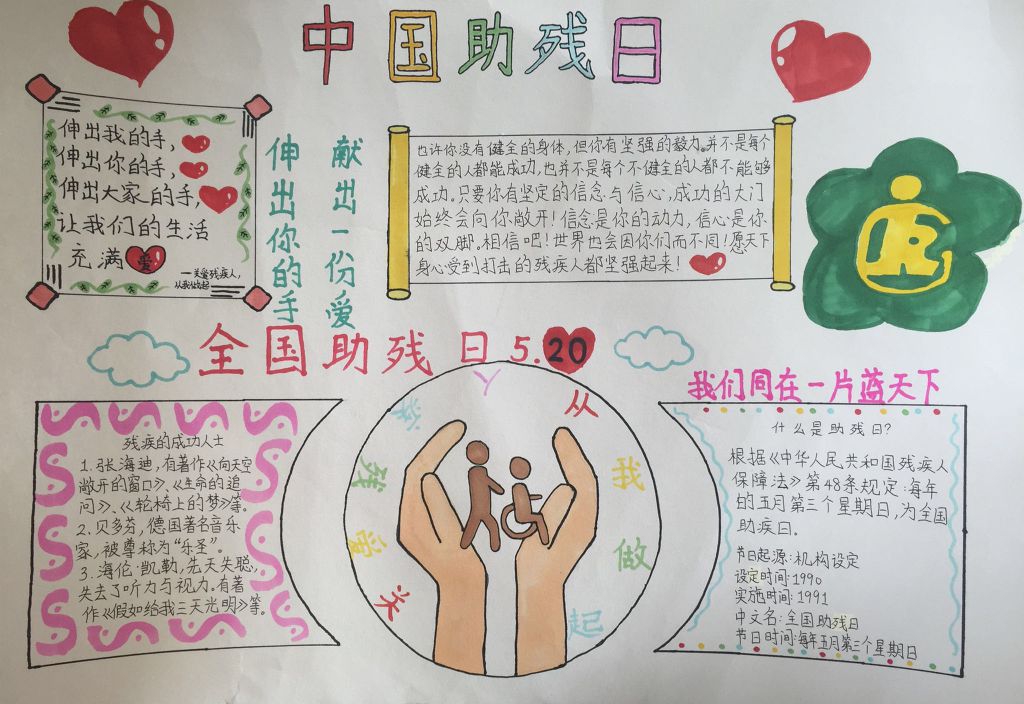 中国助残日
伸出我的手,
伸出你的手,
伸出大家的手,
让我们的生活
充满爱
一关爱残疾人,
从我做起
伸出你的手
献出一份爱
也许你没有健全的身体,但你有坚强的毅力。并不是每个
健全的人都能成功,也并不是每个不健全的人都不能够
成功。只要你有坚定的信念与信心,成功的大门
始终会向你敞开!信念是你的动力,信心是你
的双脚。相信吧!世界也会因你们而不同!愿天下
身心受到打击的残疾人都坚强起来!
全国助残日5.20
我们同在一片蓝天下
残疾的成功人士
1.张海迪,有著作《向天空
敞开的窗口》、《生命的追
问》、《轮椅上的梦》等。
2.贝多芬,德国著名音乐
家,被尊称为“乐圣”。
3.海伦·凯勒,先天失聪,
失去了听力与视力。有著
作《假如给我三天光明》等。
关爱残疾人
从我做起
什么是助残日?
根据《中华人民共和国残疾人
保障法》第48条规定:每年
的五月第三个星期日,为全国
助疾日。
节日起源:机构设定
设定时间:1990
实施时间:1991
中文名:全国助残日
节日时间:每年五月第三个星期日